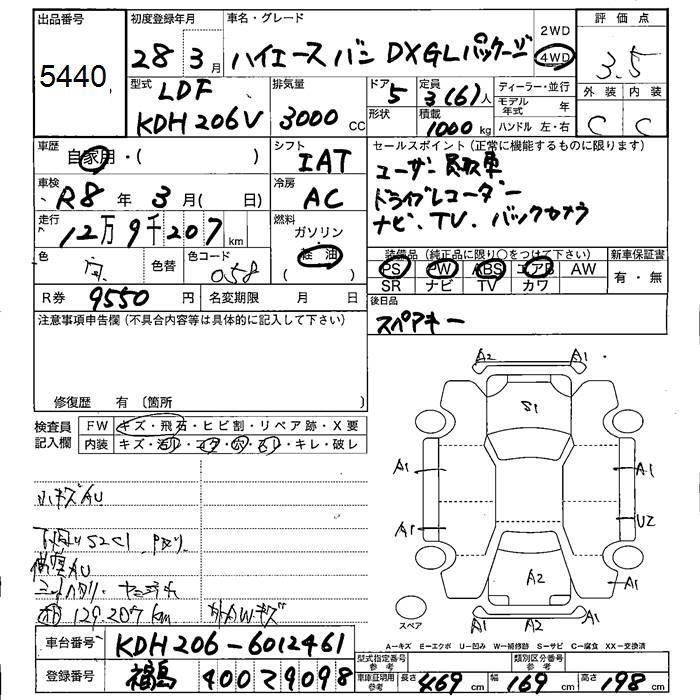 出品番号
5440
初度登録年月
28 3 月
車名・グレード
ハイエースバン DXGLパッケージ
2WD
4WD
評価点
3.5
外装 内装
C C
型式
LDF
KDH206V
排気量
3000 CC
ドア
5
形状
定員
3(6)人
積載
1000 kg
ディーラー・並行
モデル年式 年
ハンドル 左・右
車歴
自家用・( )
シフト
IAT
セールスポイント (正常に機能するものに限ります)
ユーザー買取車
ドライブレコーダー
ナビ・TV・バックカメラ
車検
R8 年 3 月( 日)
冷房
AC
走行
12万9千207 km
燃料
ガソリン
軽油
( )
色
色替
色コード
058
装備品 (純正品に限り○をつけて下さい)
PS PW ABS エアB AW
SR ナビ TV カワ
新車保証書
有・無
R券 9550 円
名変期限 月 日
後日品
スペアキー
注意事項申告欄 (不具合内容等は具体的に記入して下さい)
修復歴 有 (箇所
検査員記入欄
FW キズ・飛石・ヒビ割・リペア跡・X要
内装 キズ・汚レ・コゲ・穴・スレ・キレ・破レ
小キズAU
下廻りS2C1
129.207km
A2 A1
S1
A1 A1
A1 U2
A2 A1
A1 A2 A1
スペア
A=キズ E=エクボ U=凹み W=補修跡 S=サビ C=腐食 XX=交換済
車台番号 KDH206-6012461
登録番号 福島 400 29098
型式指定番号 参考
類別区分番号 参考
車庫証明用 参考
長さ 469 cm 幅 169 cm 高さ 198 cm